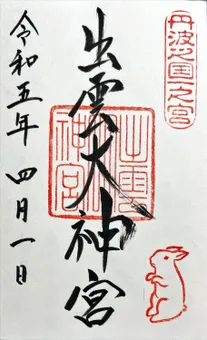 丹波之国一之宮
出雲大神宮
出雲神宮
令和五年 四月一日